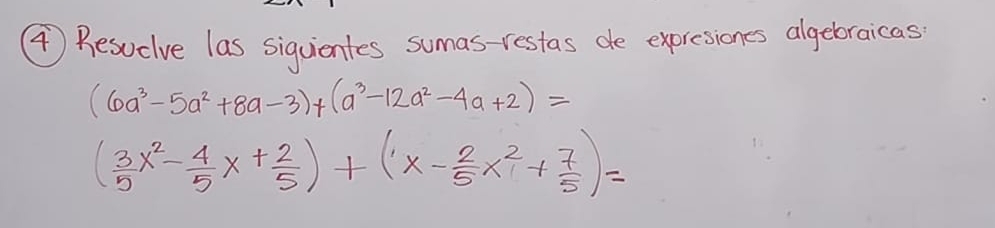 ④ Resuelve las siguientes sumas-restas de expresiones algebraicas:
(6a³-5a²+8a-3)+(a³-12a²-4a+2)=
(3/5x²-4/5x+2/5)+(x-2/5x²+7/5)=